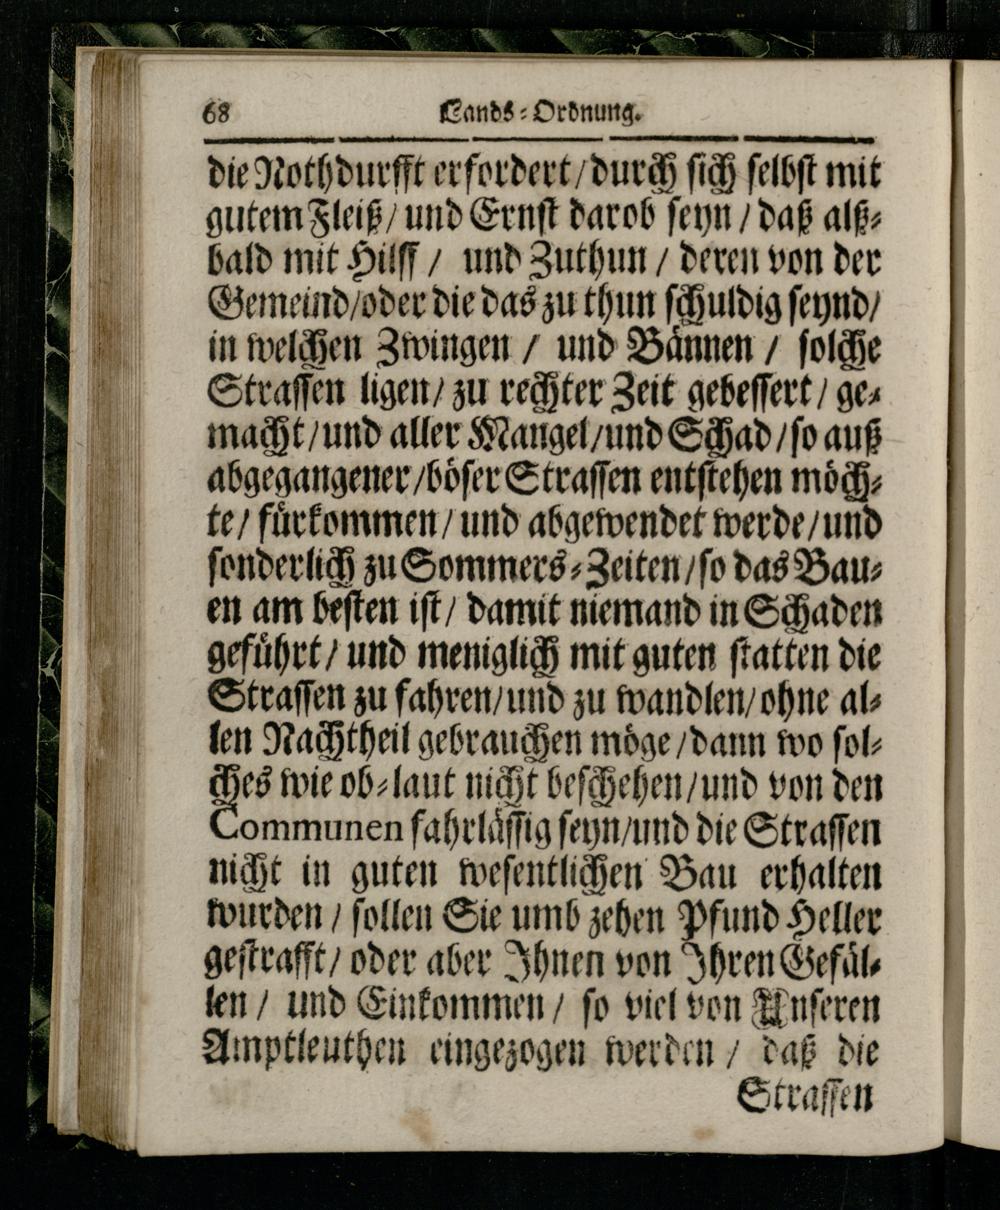 68 Lands-Ordnung.
die Nothdurfft erfordert/durch sich selbst mit
gutem Fleiß/ und Ernst darob seyn / daß alß-
bald mit Hilff / und Zuthun / deren von der
Gemeind/oder die das zu thun schuldig seynd/
in welchen Zwingen / und Bännen / solche
Strassen ligen/ zu rechter Zeit gebessert / ge-
macht/und aller Mangel/und Schad/so auß
abgegangener/böser Strassen entstehen möch-
te/ fürkommen/ und abgewendet werde/und
sonderlich zu Sommers-Zeiten/so das Bau-
en am besten ist/ damit niemand in Schaden
geführt/ und meniglich mit guten statten die
Strassen zu fahren/und zu wandlen/ohne al-
len Nachtheil gebrauchen möge/dann wo sol-
ches wie ob-laut nicht beschehen/und von den
Communen fahrlässig seyn/und die Strassen
nicht in guten wesentlichen Bau erhalten
wurden / sollen Sie umb zehen Pfund Heller
gestrafft/ oder aber Ihnen von Ihren Gefäl-
len / und Einkommen / so viel von Unseren
Amptleuthen eingezogen werden / daß die
Strassen